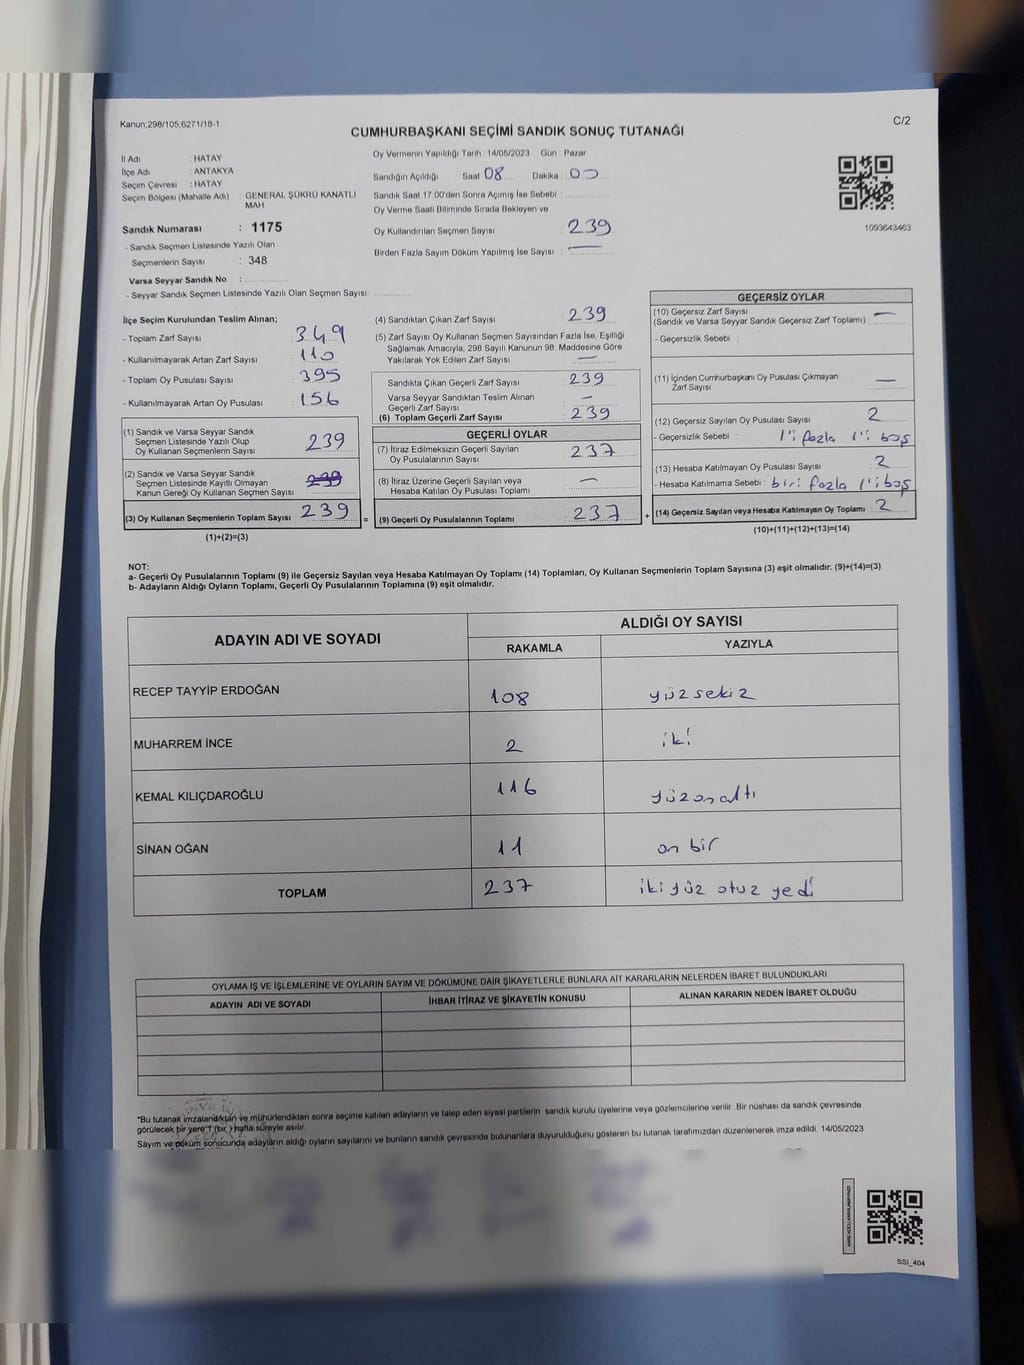 Kanun;298/105,6271/18-1
C/2
CUMHURBAŞKANI SEÇİMİ SANDIK SONUÇ TUTANAĞI
İl Adı : HATAY
İlçe Adı : ANTAKYA
Seçim Çevresi : HATAY
Seçim Bölgesi (Mahalle Adı) : GENERAL ŞÜKRÜ KANATLI MAH
Sandık Numarası : 1175
- Sandık Seçmen Listesinde Yazılı Olan
Seçmenlerin Sayısı : 348
Varsa Seyyar Sandık No :
- Seyyar Sandık Seçmen Listesinde Yazılı Olan Seçmen Sayısı:
Oy Vermenin Yapıldığı Tarih : 14/05/2023 Gün : Pazar
Sandığın Açıldığı Saat 08 Dakika : 00
Sandık Saat 17.00'den Sonra Açımış İse Sebebi :
Oy Verme Saati Bitiminde Sırada Bekleyen ve
Oy Kullandırılan Seçmen Sayısı : 239
Birden Fazla Sayım Döküm Yapılmış İse Sayısı : —
1093643463
İlçe Seçim Kurulundan Teslim Alınan;
- Toplam Zarf Sayısı : 349
- Kullanılmayarak Artan Zarf Sayısı : 110
- Toplam Oy Pusulası Sayısı : 395
- Kullanılmayarak Artan Oy Pusulası : 156
(1) Sandık ve Varsa Seyyar Sandık
Seçmen Listesinde Yazılı Olup
Oy Kullanan Seçmenlerin Sayısı : 239
(2) Sandık ve Varsa Seyyar Sandık
Seçmen Listesinde Kayıtlı Olmayan
Kanun Gereği Oy Kullanan Seçmen Sayısı : 239
(3) Oy Kullanan Seçmenlerin Toplam Sayısı : 239
(1)+(2)=(3)
(4) Sandıktan Çıkan Zarf Sayısı : 239
(5) Zarf Sayısı Oy Kullanan Seçmen Sayısından Fazla İse, Eşitliği
Sağlamak Amacıyla, 298 Sayılı Kanunun 98. Maddesine Göre
Yakılarak Yok Edilen Zarf Sayısı : —
Sandıkta Çıkan Geçerli Zarf Sayısı : 239
Varsa Seyyar Sandıktan Teslim Alınan
Geçerli Zarf Sayısı : —
(6) Toplam Geçerli Zarf Sayısı : 239
GEÇERLİ OYLAR
(7) İtiraz Edilmeksizin Geçerli Sayılan
Oy Pusulalarının Sayısı : 237
(8) İtiraz Üzerine Geçerli Sayılan veya
Hesaba Katılan Oy Pusulası Toplamı : —
= (9) Geçerli Oy Pusulalarının Toplamı : 237
GEÇERSİZ OYLAR
(10) Geçersiz Zarf Sayısı : —
(Sandık ve Varsa Seyyar Sandık Geçersiz Zarf Toplamı)
- Geçersizlik Sebebi :
(11) İçinden Cumhurbaşkanı Oy Pusulası Çıkmayan
Zarf Sayısı : —
(12) Geçersiz Sayılan Oy Pusulası Sayısı : 2
- Geçersizlik Sebebi : 1'i fazla 1'i boş
(13) Hesaba Katılmayan Oy Pusulası Sayısı : 2
- Hesaba Katılmama Sebebi : biri fazla 1'i boş
+ (14) Geçersiz Sayılan veya Hesaba Katılmayan Oy Toplamı : 2
(10)+(11)+(12)+(13)=(14)
NOT:
a- Geçerli Oy Pusulalarının Toplamı (9) ile Geçersiz Sayılan veya Hesaba Katılmayan Oy Toplamı (14) Toplamları, Oy Kullanan Seçmenlerin Toplam Sayısına (3) eşit olmalıdır. (9)+(14)=(3)
b- Adayların Aldığı Oyların Toplamı, Geçerli Oy Pusulalarının Toplamına (9) eşit olmalıdır.
ADAYIN ADI VE SOYADI
ALDIĞI OY SAYISI
RAKAMLA YAZIYLA
RECEP TAYYİP ERDOĞAN 108 yüz sekiz
MUHARREM İNCE 2 iki
KEMAL KILIÇDAROĞLU 116 yüz on altı
SİNAN OĞAN 11 on bir
TOPLAM 237 iki yüz otuz yedi
OYLAMA İŞ VE İŞLEMLERİNE VE OYLARIN SAYIM VE DÖKÜMÜNE DAİR ŞİKAYETLERLE BUNLARA AİT KARARLARIN NELERDEN İBARET BULUNDUKLARI
ADAYIN ADI VE SOYADI İHBAR İTİRAZ VE ŞİKAYETİN KONUSU ALINAN KARARIN NEDEN İBARET OLDUĞU
"Bu tutanak imzalandıktan ve mühürlendikten sonra seçime katılan adayların ve talep eden siyasi partilerin sandık kurulu üyelerine veya gözlemcilerine verilir. Bir nüshası da sandık çevresinde
görülecek bir yere 1 (bir) hafta süreyle asılır.
Sayım ve döküm sonucunda adayların aldığı oyların sayılarını ve bunların sandık çevresinde bulunanlara duyurulduğunu gösteren bu tutanak tarafımızdan düzenlenerek imza edildi. 14/05/2023
SSI_404